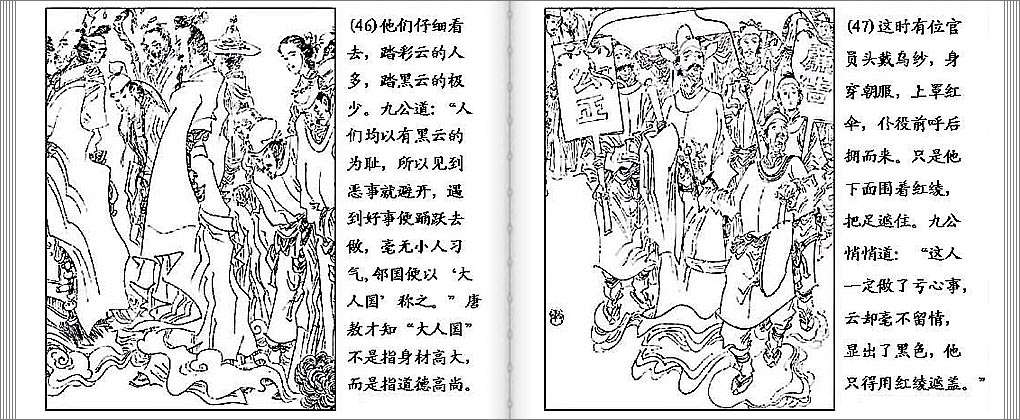 (46)他们仔细看
去，踏彩云的人
多，踏黑云的极
少。九公道：“人
们均以有黑云的
为耻，所以见到
恶事就避开，遇
到好事便踊跃去
做，毫无小人习
气,邻国便以‘大
人国’称之。”唐
敖才知“大人国”
不是指身材高大，
而是指道德高尚。
公正
廉
(47)这时有位官
员头戴乌纱，身
穿朝服，上罩红
伞，仆役前呼后
拥而来。只是他
下面围着红绫，
把足遮住。九公
悄悄道：“这人
一定做了亏心事，
云却毫不留情，
显出了黑色，他
只得用红绫遮盖。”